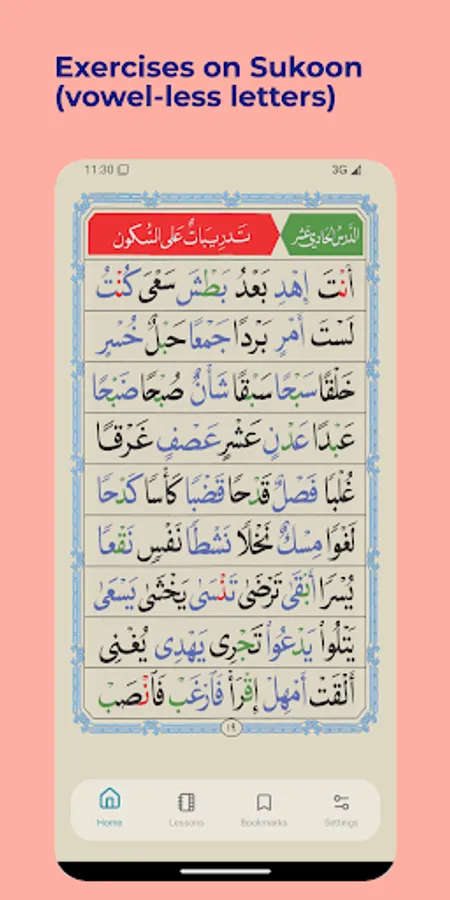 Exercises on Sukoon
(vowel-less letters)
11:30 3G
الدَّرْسُ الحَادِي عَشَر تَدْرِيبَاتٌ عَلَى السُّكُون
أَنْتَ إِهْدِ بَعْدُ بَطْشَ سَعْيَ كُنْتُ
لَسْتَ أَمْرٍ بَرْدًا جَمْعًا حَبْلٌ خُسْرٍ
خَلْقًا سَبْحًا سَبْقًا شَأْنٌ صُبْحًا ضَبْحًا
عَبْدًا عَدْنٍ عَشْرٍ عَصْفٍ غَرْقًا
غُلْبًا فَصْلٌ قَدْحًا قَضْبًا كَأْسًا كَدْحًا
لَغْوًا مِسْكٌ نَخْلًا نَشْطًا نَفْسٍ نَقْعًا
يُسْرًا أَبْقَىٰ تَرْضَىٰ تَنْسَىٰ يَخْشَىٰ يَسْعَىٰ
يَتْلُواْ يَدْعُواْ تَجْرِي يَهْدِي يُغْنِي
أَلْقَتْ أَمْهِلْ إِقْرَأْ فَٱرْغَبْ فَٱنْصَبْ
١٩
Home Lessons Bookmarks Settings